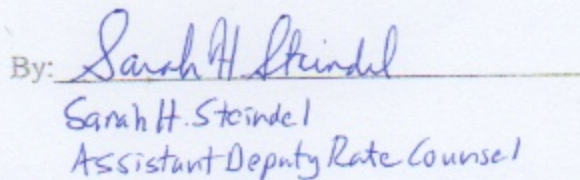 By: Sarah H Steindel
Sarah H. Steindel
Assistant Deputy Rate Counsel